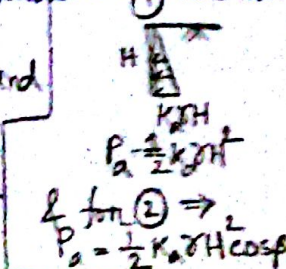 ①
H
rd
KₐγH
Pₐ = ½ KₐγH²
& for ② ⇒
Pₐ = ½ KₐγH² cosβ